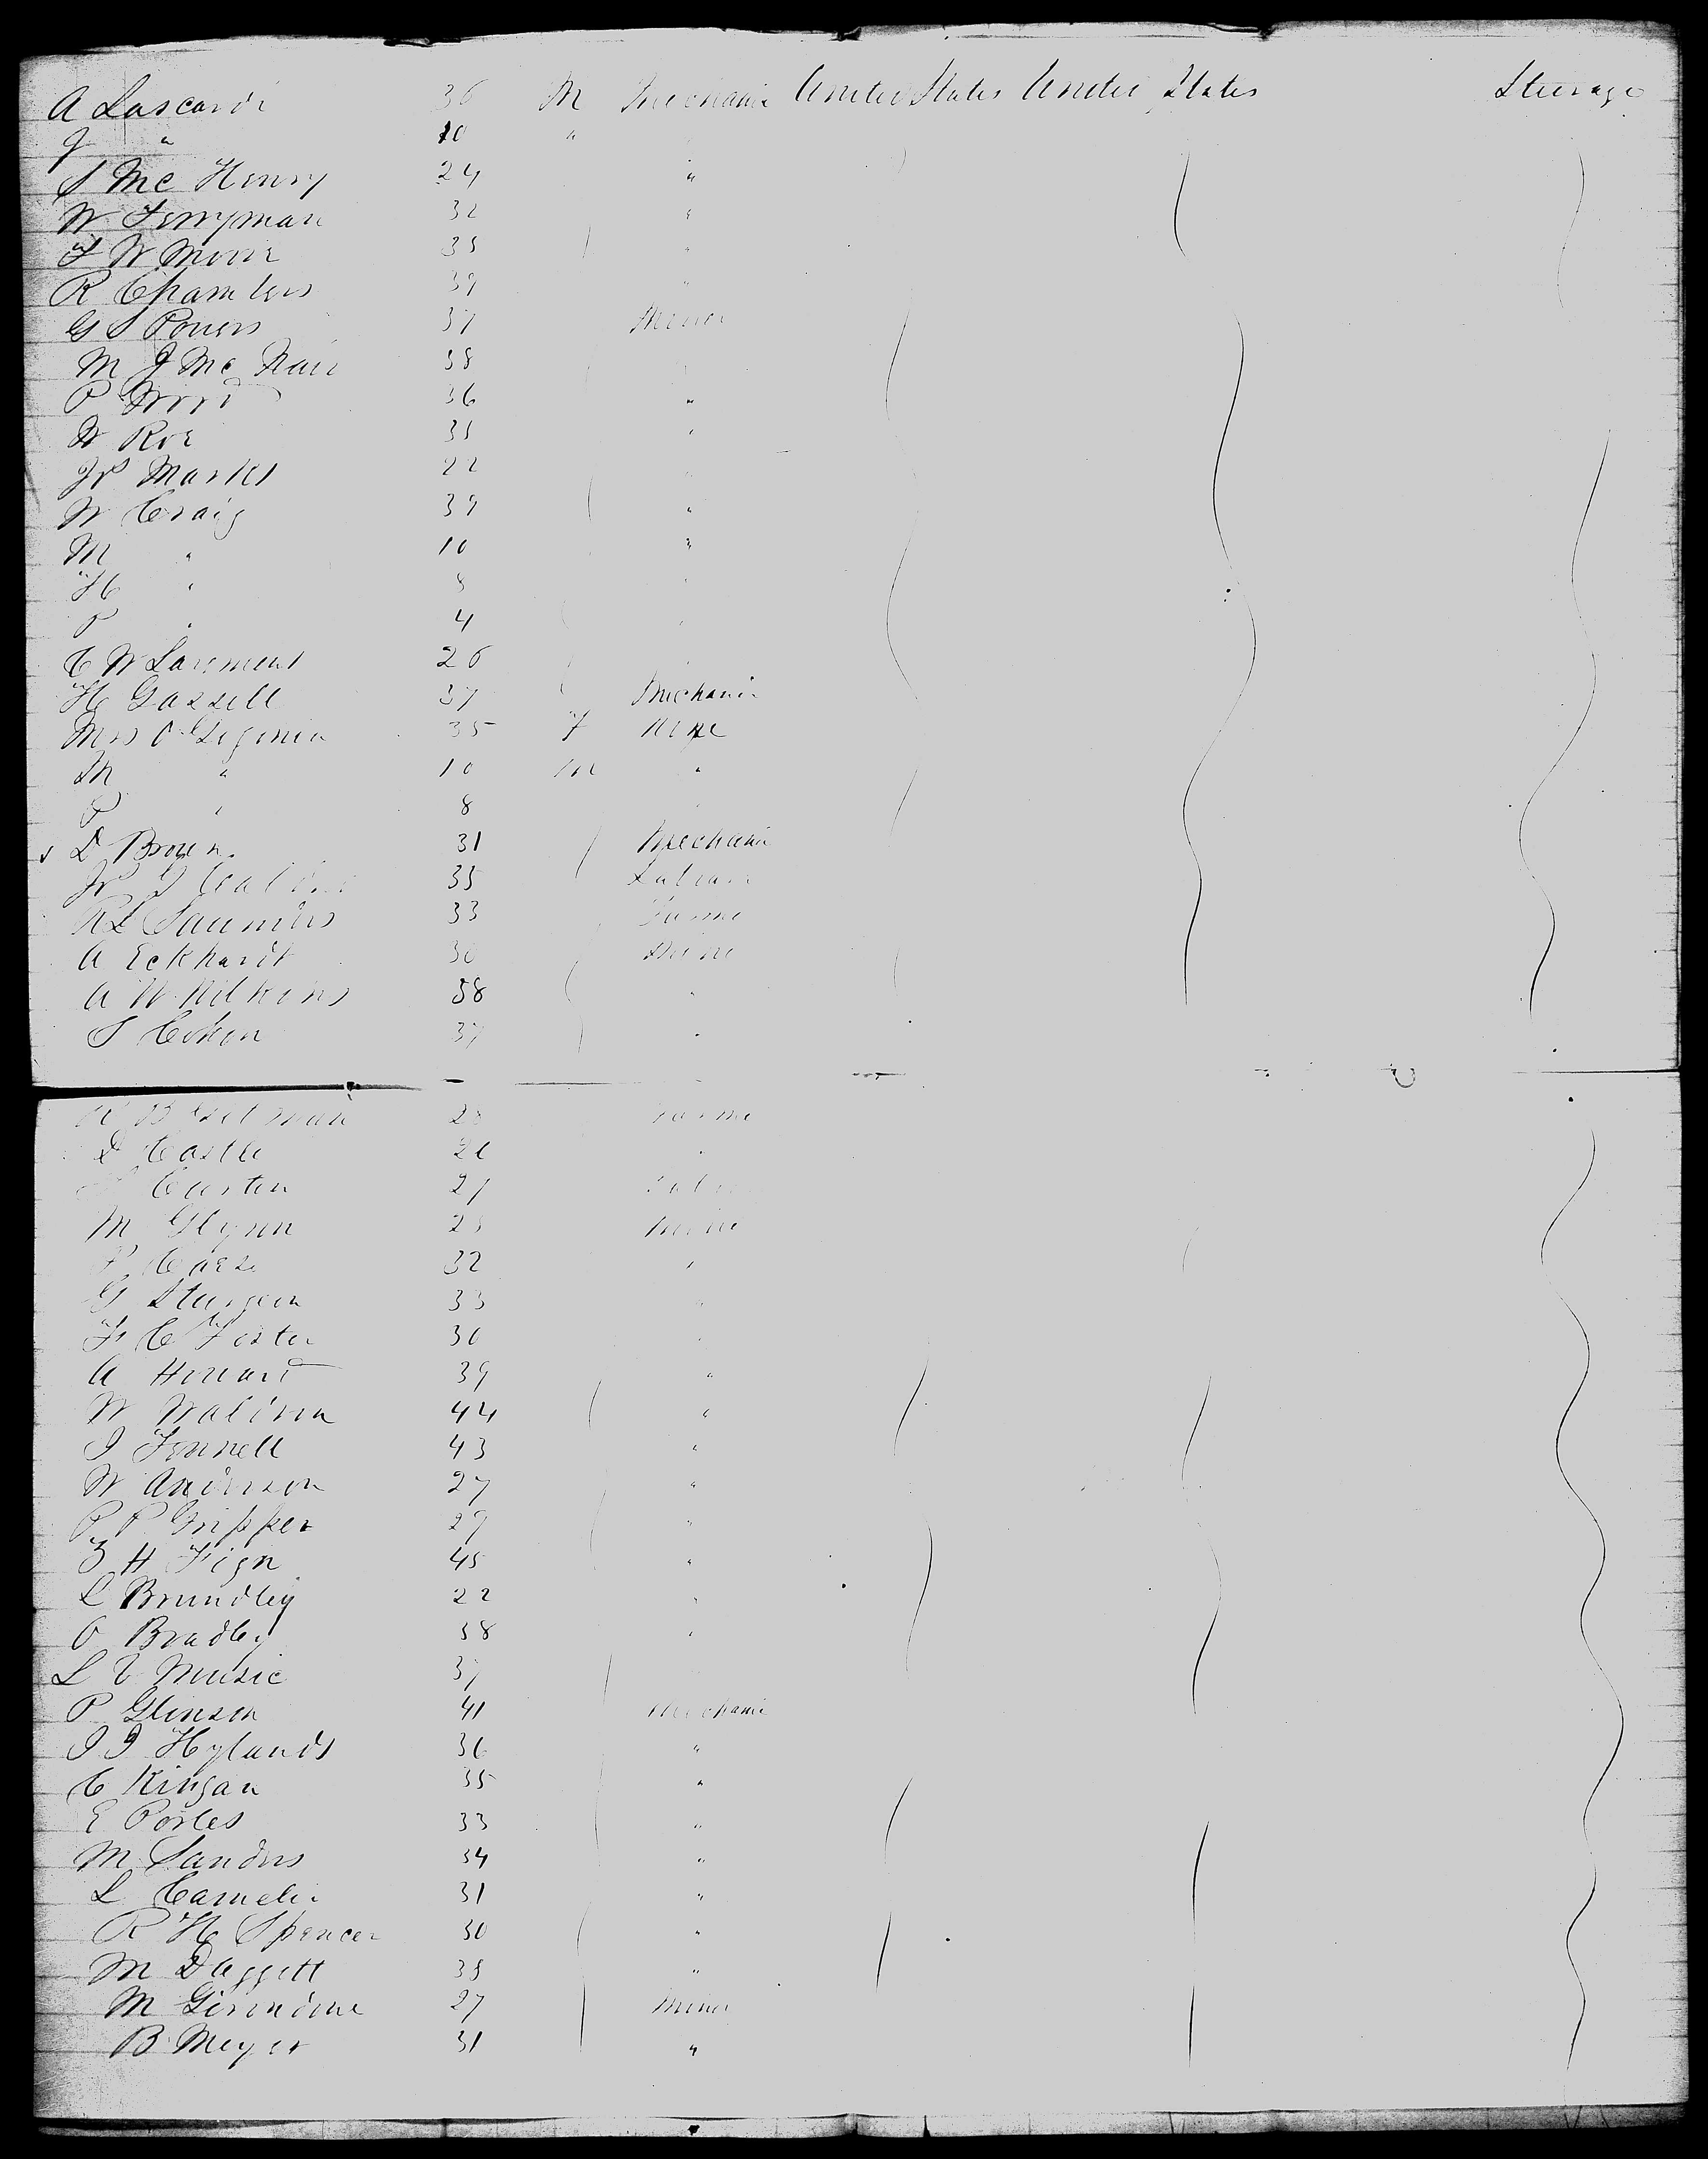 A Lascardi 36 M Mechanic United States United States Steerage
J " 10 "
S Mc Henry 24 "
W Ferryman 32 "
F W Moore 35 "
R Chambers 39 "
G S Powers 37 Miner
M J Mc Nair 38
P Wood 36 "
W Roe 35 "
Jos Marks 22
W Craig 39 "
M " 10 "
H " 8 "
P " 4 "
C W Larsmont 26
H Gazzell 37 Mechanic
Mrs O 35 F Wife
M " 10 M "
P " 8
D Brown 31 Mechanic
Jos 35
R L Saunders 33 Farmer
A Eckhardt 30 Miner
A W Wilkins 38 "
S Cohen 37 "
28 Farmer
D Castle 26 "
Carsten 27
M Glynn 28 Miner
32 "
G Sturgeon 33 "
F C Foster 30 "
A Howard 39 "
W Waldron 44 "
J Fennell 43 "
W Anderson 27 "
P P Gripper 29 "
Z H Fign 45 "
L Brundley 22 "
O Bradley 38 "
L V Music 37
P Glinson 41 Mechanic
J J Hylands 36 "
C Kingan 35 "
E Portes 33 "
M Sanders 34 "
L Cameler 31 "
R H Spencer 30 "
M Daggett 38 "
M 27 Miner
B Meyer 31 "